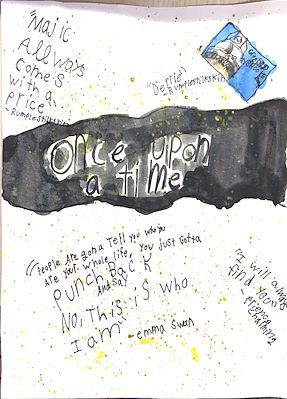 "Majic
Allways
comes
with a
price"
- Rumplestilskin
"Derlie"
- Rumplestilskin
Once upon
a time
"People are gona Tell you who you
are your whole life, you just gotta
punch back
and say
No, This is who
I am" - emma swan
"I will always
find you"
- prence
charming